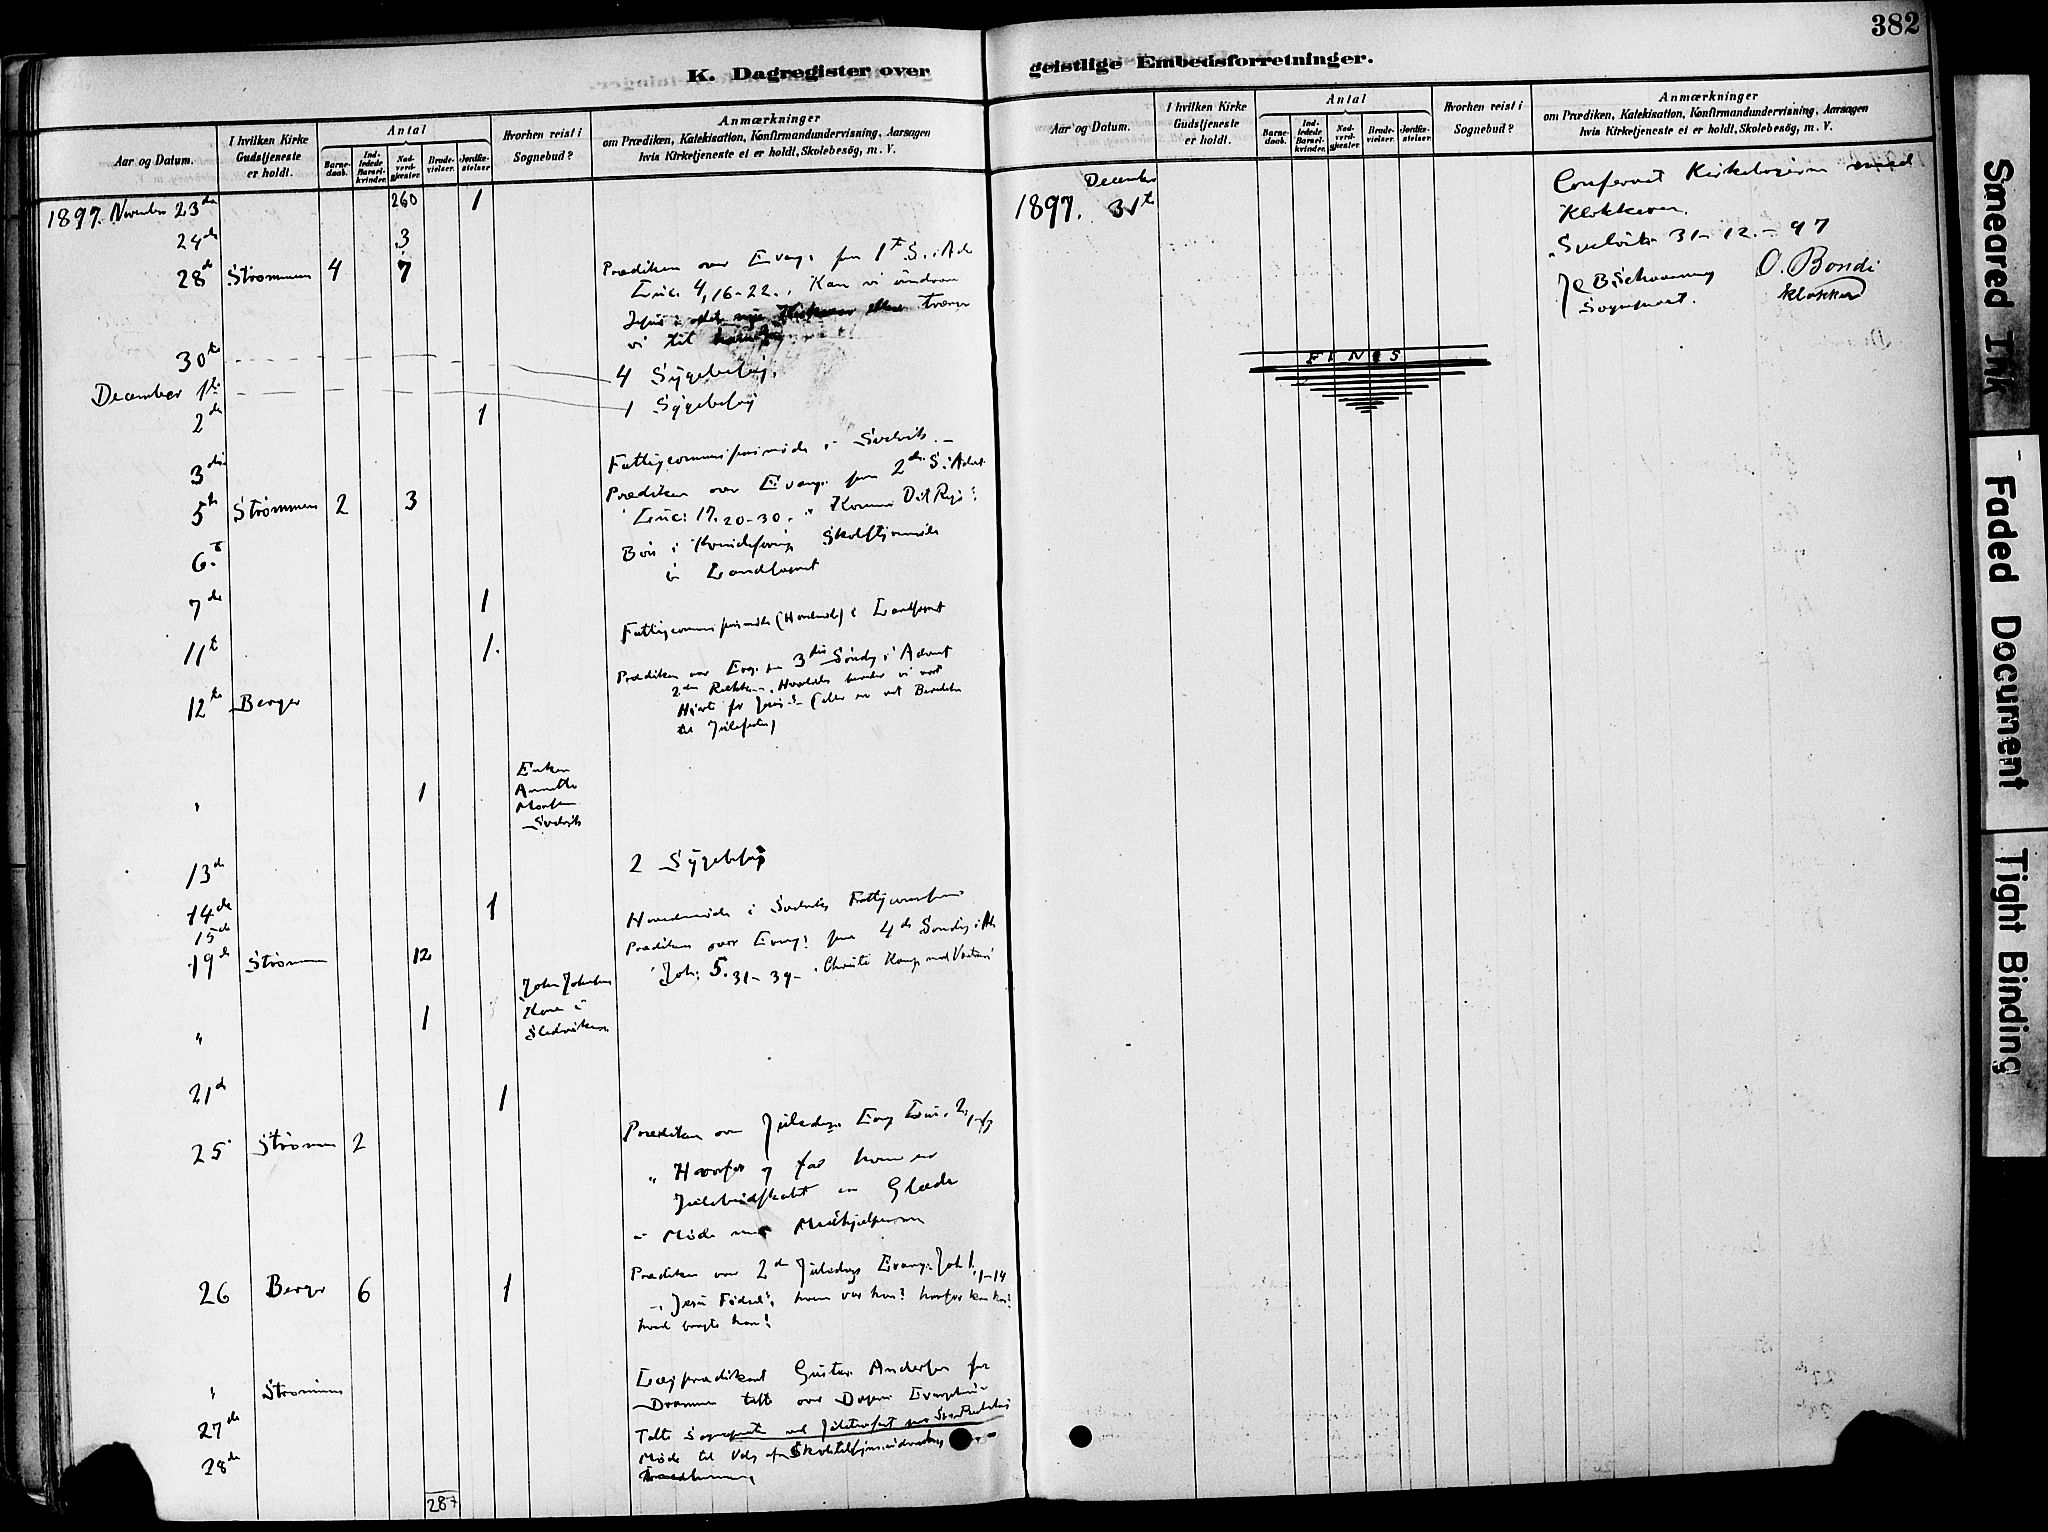 K. Dagregister over
Aar og Datum.
I hvilken Kirke Gudstjeneste er holdt.
Antal
Barnedaab.
Indledede Barselkvinder.
Nadverdgjæster.
Brudevielser.
Jordfæstelser.
Hvorhen reist i Sognebud?
Anmærkninger
om Prædiken, Katekisation, Konfirmandundervisning, Aarsagen
hvis Kirketjeneste ei er holdt, Skolebesög, m. V.
1897. November 23de 260 1
24de 3
28de Strømmen 4 7 Prædiken over Evang: paa 1ste S. i Ad
Luc. 4, 16-22. Kan vi undvære
Jesus i det nye Kirkeaar eller trænger
vi til
30te 4 Sygebesøg.
December 1ste 1 Sygebesøg
2de 1
3die Fattigcommissionsmøde i Svelvik.
5te Strømmen 2 3 Prædiken over Evang. paa 2den S. i Advt
Luc: 17. 20-30. "Komme Dit Rige!
6te Bøn i Kvindeforening Skoletilsynsmøde
i Landsognet
7de 1
Fattigcommissionsmøde (Hovedmøde) i Landsognet
11te 1.
12te Berger Prædiken over Evg. paa 3die Søndag i Advent
2den Række. Hvorledes bereder vi vort
Hjerte for Jesus - (eller en ret Beredelse
til Julefesten)
" 1 Enken
Annette
Svelvik
13de 2 Sygebesøg
14de 1
15de Hovedmøde i Svelviks Fattigcommission
19de Strømmen 12 Prædiken over Evang: paa 4de Søndag i Ad
Joh: 5. 31-39- "Christi Kamp med Vantroen"
" 1 John Johnsens
Kone i
21de 1
25 Strømmen 2 Prædiken over Juledags Evang Luc. 2, 1-
" Hvorfor og for hvem er
Julebudskabet en Glæde
- Møde med Medhjelperne
26 Berger 6 1 Prædiken over 2den Juledags Evang: Joh 1. 1-14
- "Jesu Fødsel", hvem var han? hvorfor kom han?
hvad bragte han!
" Strømmen Lægprædikant Gustav Andersen fra
Drammen talte over Dagens Evangelium
27de Talte Sognepresten ved Juletræfest paa
28de Møde til Valg af Skoletilsynsudvalg
287
382
geistlige Embedsforretninger.
Aar og Datum.
I hvilken Kirke Gudstjeneste er holdt.
Antal
Barnedaab.
Indledede Barselkvinder.
Nadverdgjæster.
Brudevielser.
Jordfæstelser.
Hvorhen reist i Sognebud?
Anmærkninger
om Prædiken, Katekisation, Konfirmandundervisning, Aarsagen
hvis Kirketjeneste ei er holdt, Skolebesög, m. V.
December
1897. 31te
Conferert Kirkebogen med
Klokkeren.
Svelvik 31-12.-97
J C B Schaanning O. Bondi
Sognepræst. Klokker
FINIS
Smeared Ink
Faded Document
Tight Binding